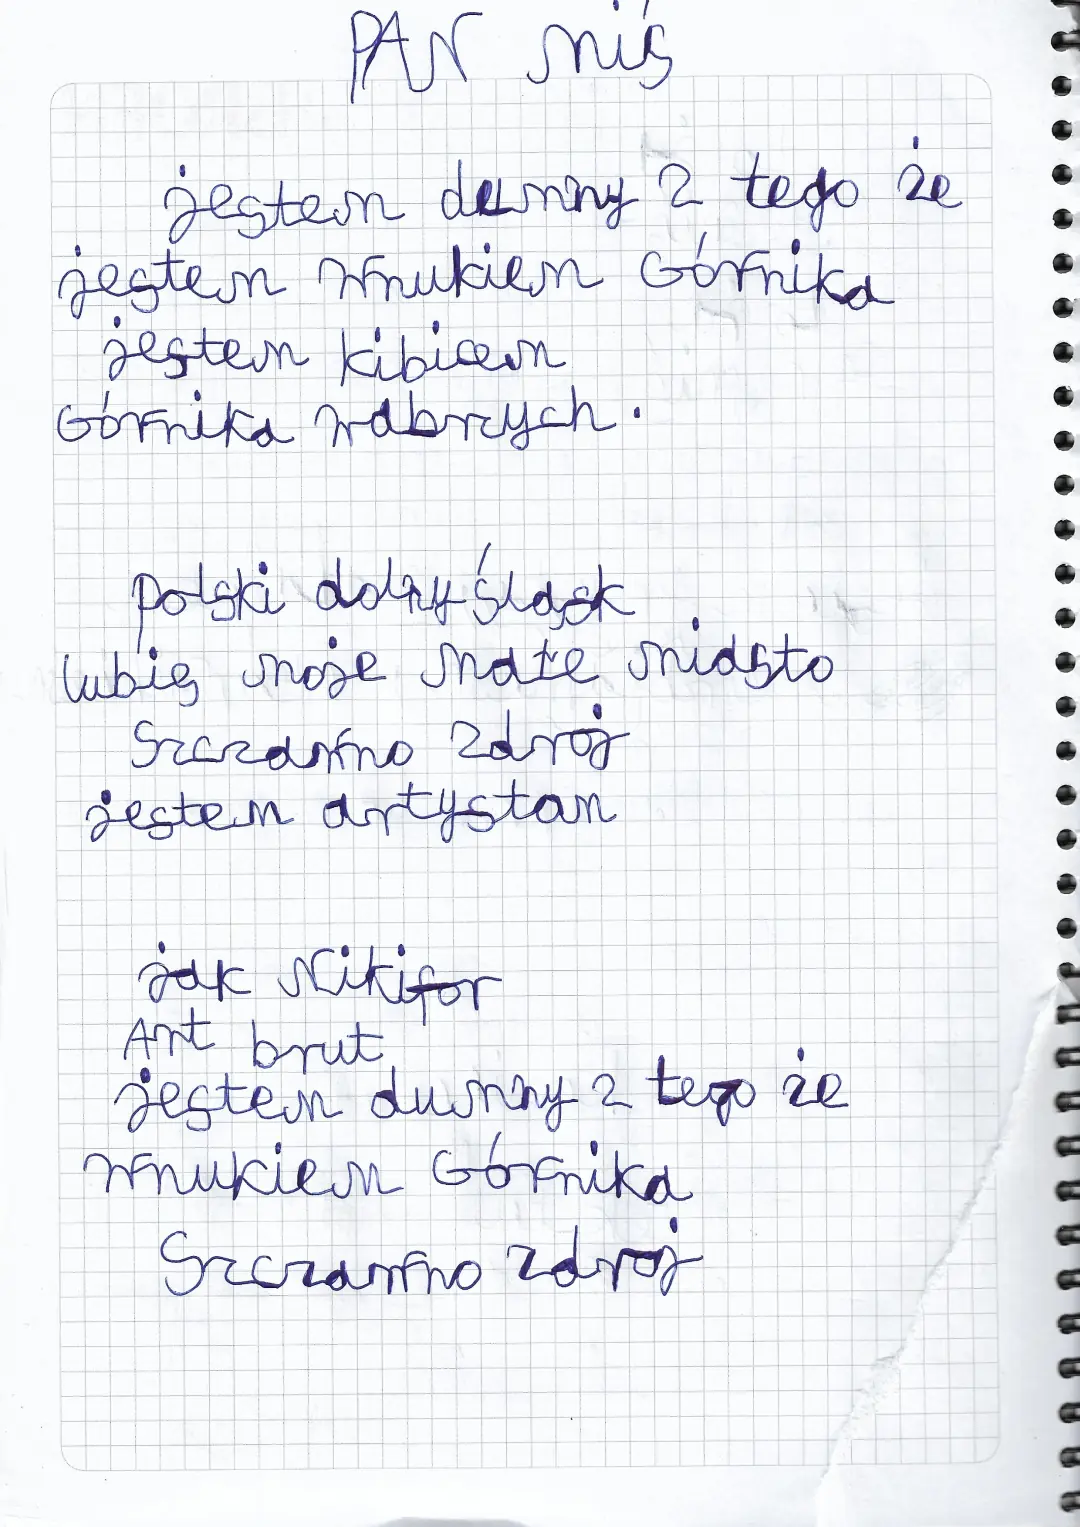 PAN miś
jestem dumny z tego że
jestem wnukiem Górnika
jestem kibicem
Górnika wabrzych.
polski dolny śląsk
lubię moje małe miasto
Szczawno zdrój
jestem artystan
jak Nikifor
Art brut
jestem dumny z tego że
wnukiem Górnika
Szczawno zdrój